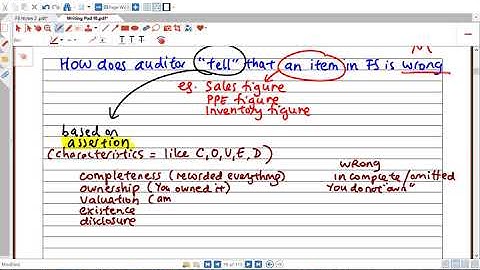 Writing Pad 10.pdf*
M
How does auditor "tell" that an item in FS is wrong
eg. Sales figure
PPE figure
Inventory figure
based on
assertion
(characteristics = like C,O,V,E,D)
wrong
completeness (recorded everything) incomplete/omitted
ownership (You owned it) You do not "own"
valuation (am
existence
disclosure